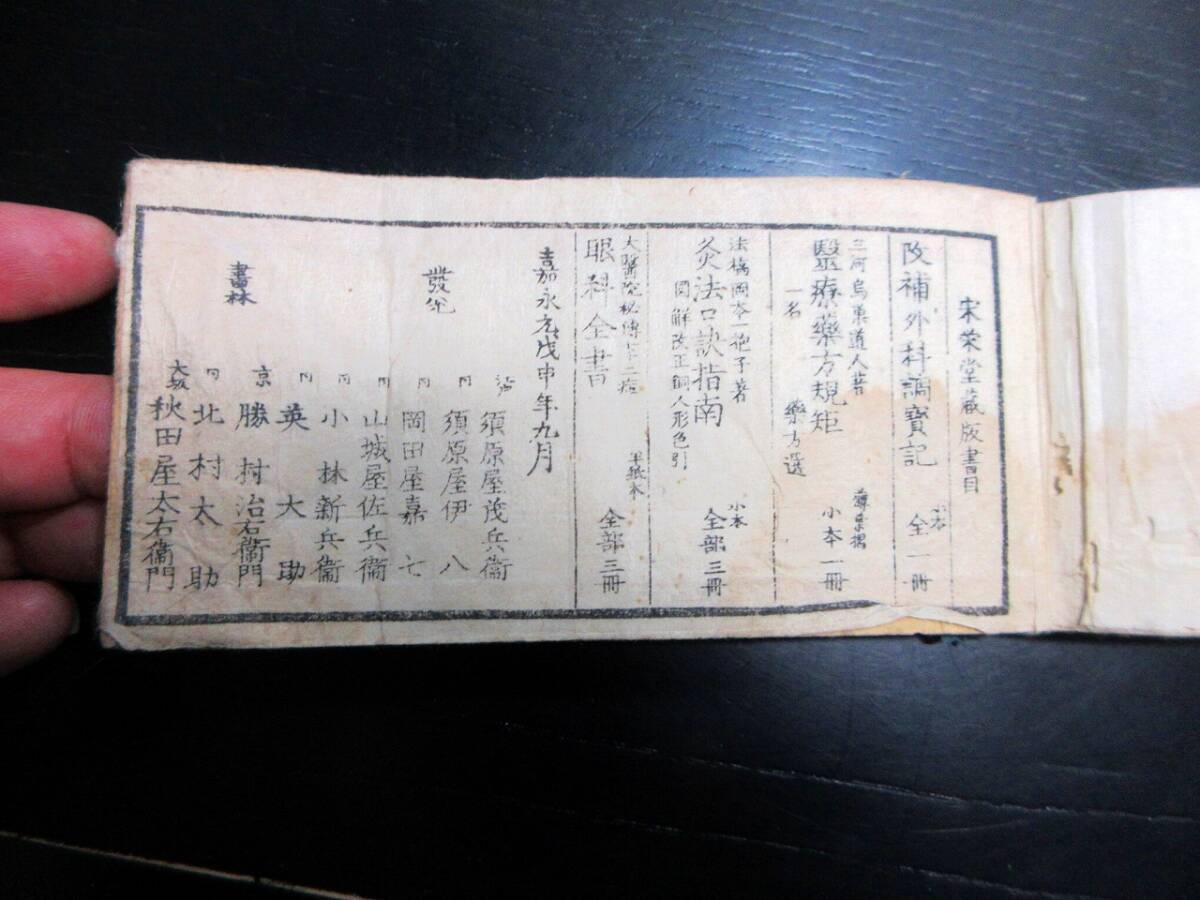 宋栄堂蔵版書目
改補外科調寶記 小本 全一冊
三河烏巣道人著
醫療藥方規矩 薄葉摺 小本一冊
一名 藥方選
法橋岡本一抱子著
灸法口訣指南 小本 全部三冊
図解改正銅人形色引
大醫院秘傳七十二症 半紙本
眼科全書 全部三冊
嘉永元戊申年九月
發兌
須原屋茂兵衞
同 須原屋伊八
同 岡田屋嘉七
同 山城屋佐兵衞
同 小林新兵衞
同 英大助
京 勝村治右衞門
書林
同 北村太助
大坂 秋田屋太右衞門